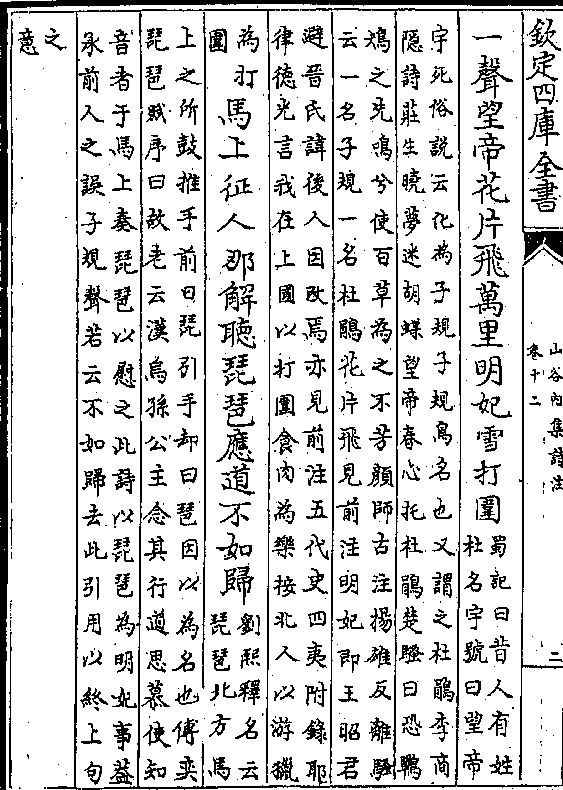 欽定四庫全書
山谷內集詩注
卷十二
二
一聲望帝花片飛萬里明妃雪打圍
蜀記曰昔人有姓
杜名宇號曰望帝
宇死俗說云化為子規子規鳥名也又謂之杜鵑李商
隱詩莊生曉夢迷胡蝶望帝春心托杜鵑楚騷曰恐鵜
鴂之先鳴兮使百草為之不芳顏師古注揚雄反離騷
云一名子規一名杜鵑花片飛見前注明妃即王昭君
避晉氏諱後人因改焉亦見前注五代史四夷附錄耶
律德光言我在上國以打圍食肉為樂按北人以游獵
為打
圍
馬上征人那解聽琵琶應道不如歸
劉熙釋名云
琵琶北方馬
上之所鼓推手前曰琵引手却曰琶因以為名也傅奕
琵琶賦序曰故老云漢烏孫公主念其行道思慕使知
音者于馬上奏琵琶以慰之此詩以琵琶為明妃事蓋
承前人之誤子規聲若云不如歸去此引用以終上句
之
意